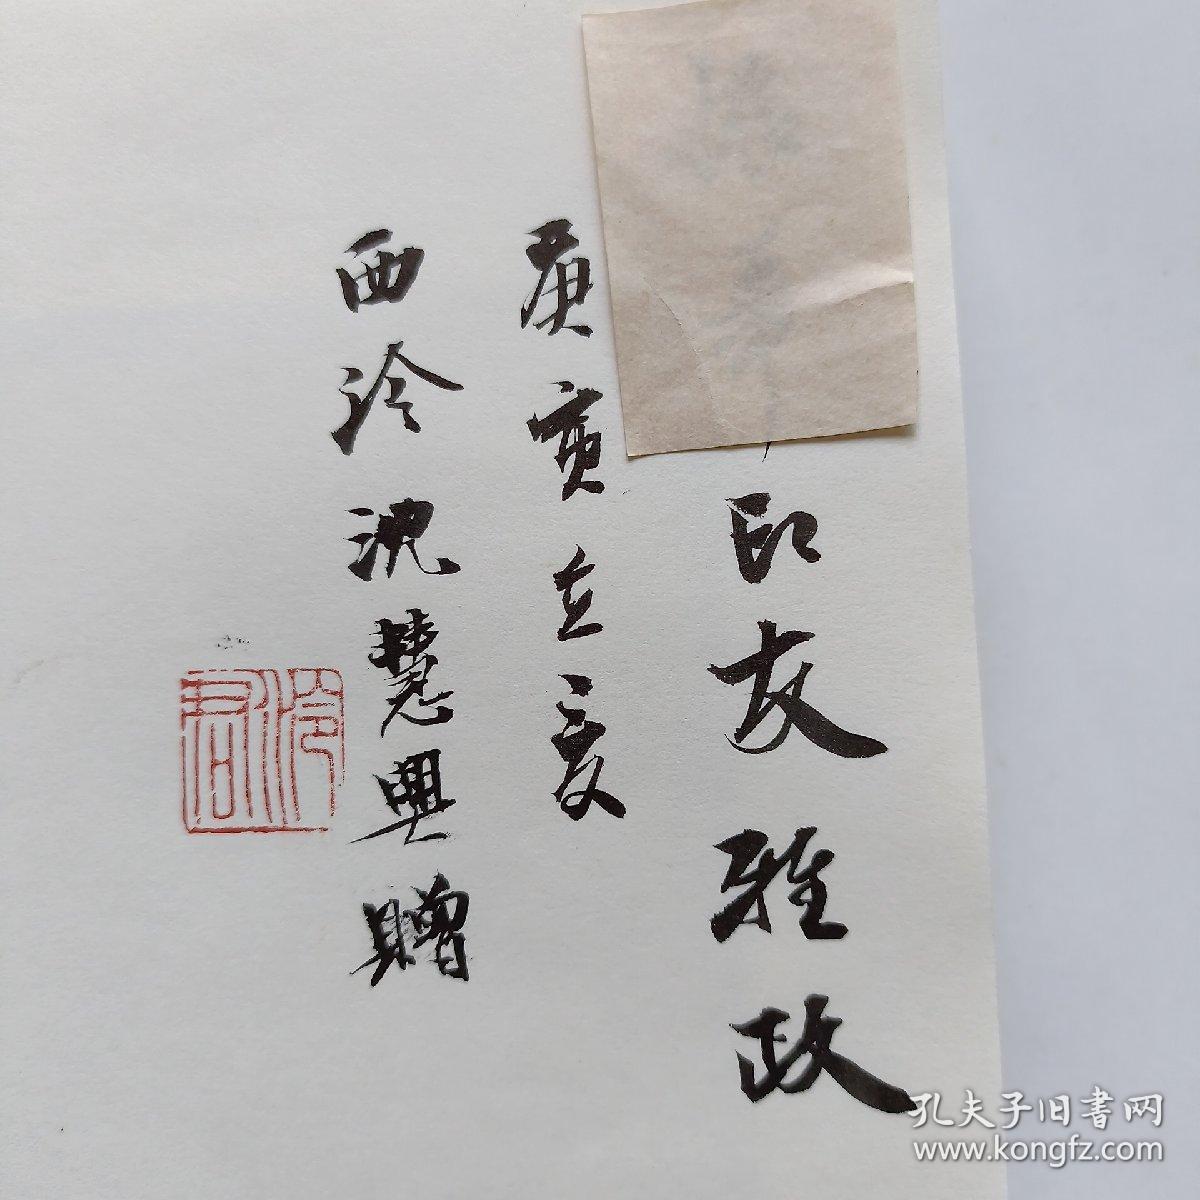 印友雅政
庚寅立夏
西泠沈慧興贈
泠君
孔夫子旧書网
www.kongfz.com